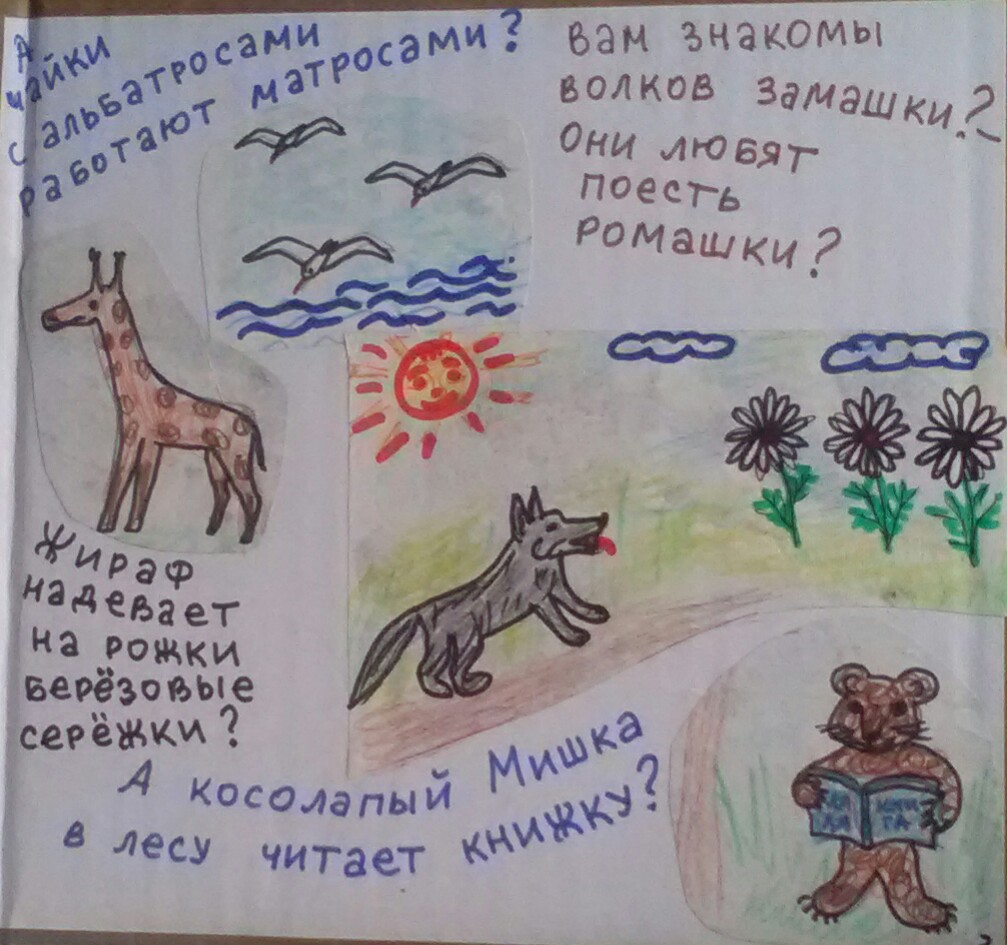 А
чайки
с альбатросами
работают матросами?
Вам знакомы
волков замашки?
Они любят
поесть
ромашки?
Жираф
надевает
на рожки
берёзовые
серёжки?
А косолапый Мишка
в лесу читает книжку?
КНИ
ГА